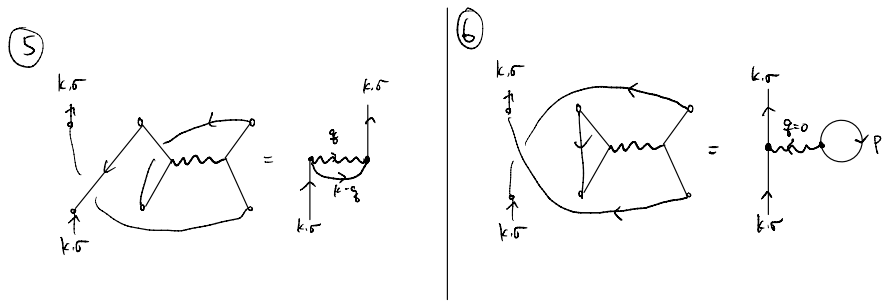 5
k,σ
k,σ
=
k,σ
q
k-q
k,σ
6
k,σ
k,σ
=
k,σ
q=0
p
k,σ